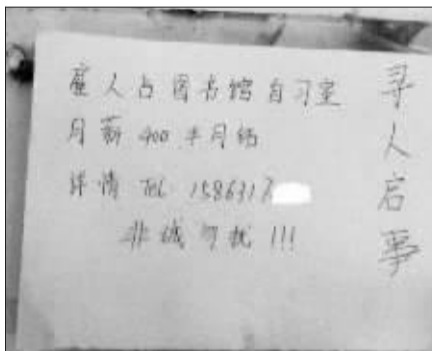 寻人启事
雇人占图书馆自习室
月薪400半月结
详情 TEL 1586317
非诚勿扰!!!